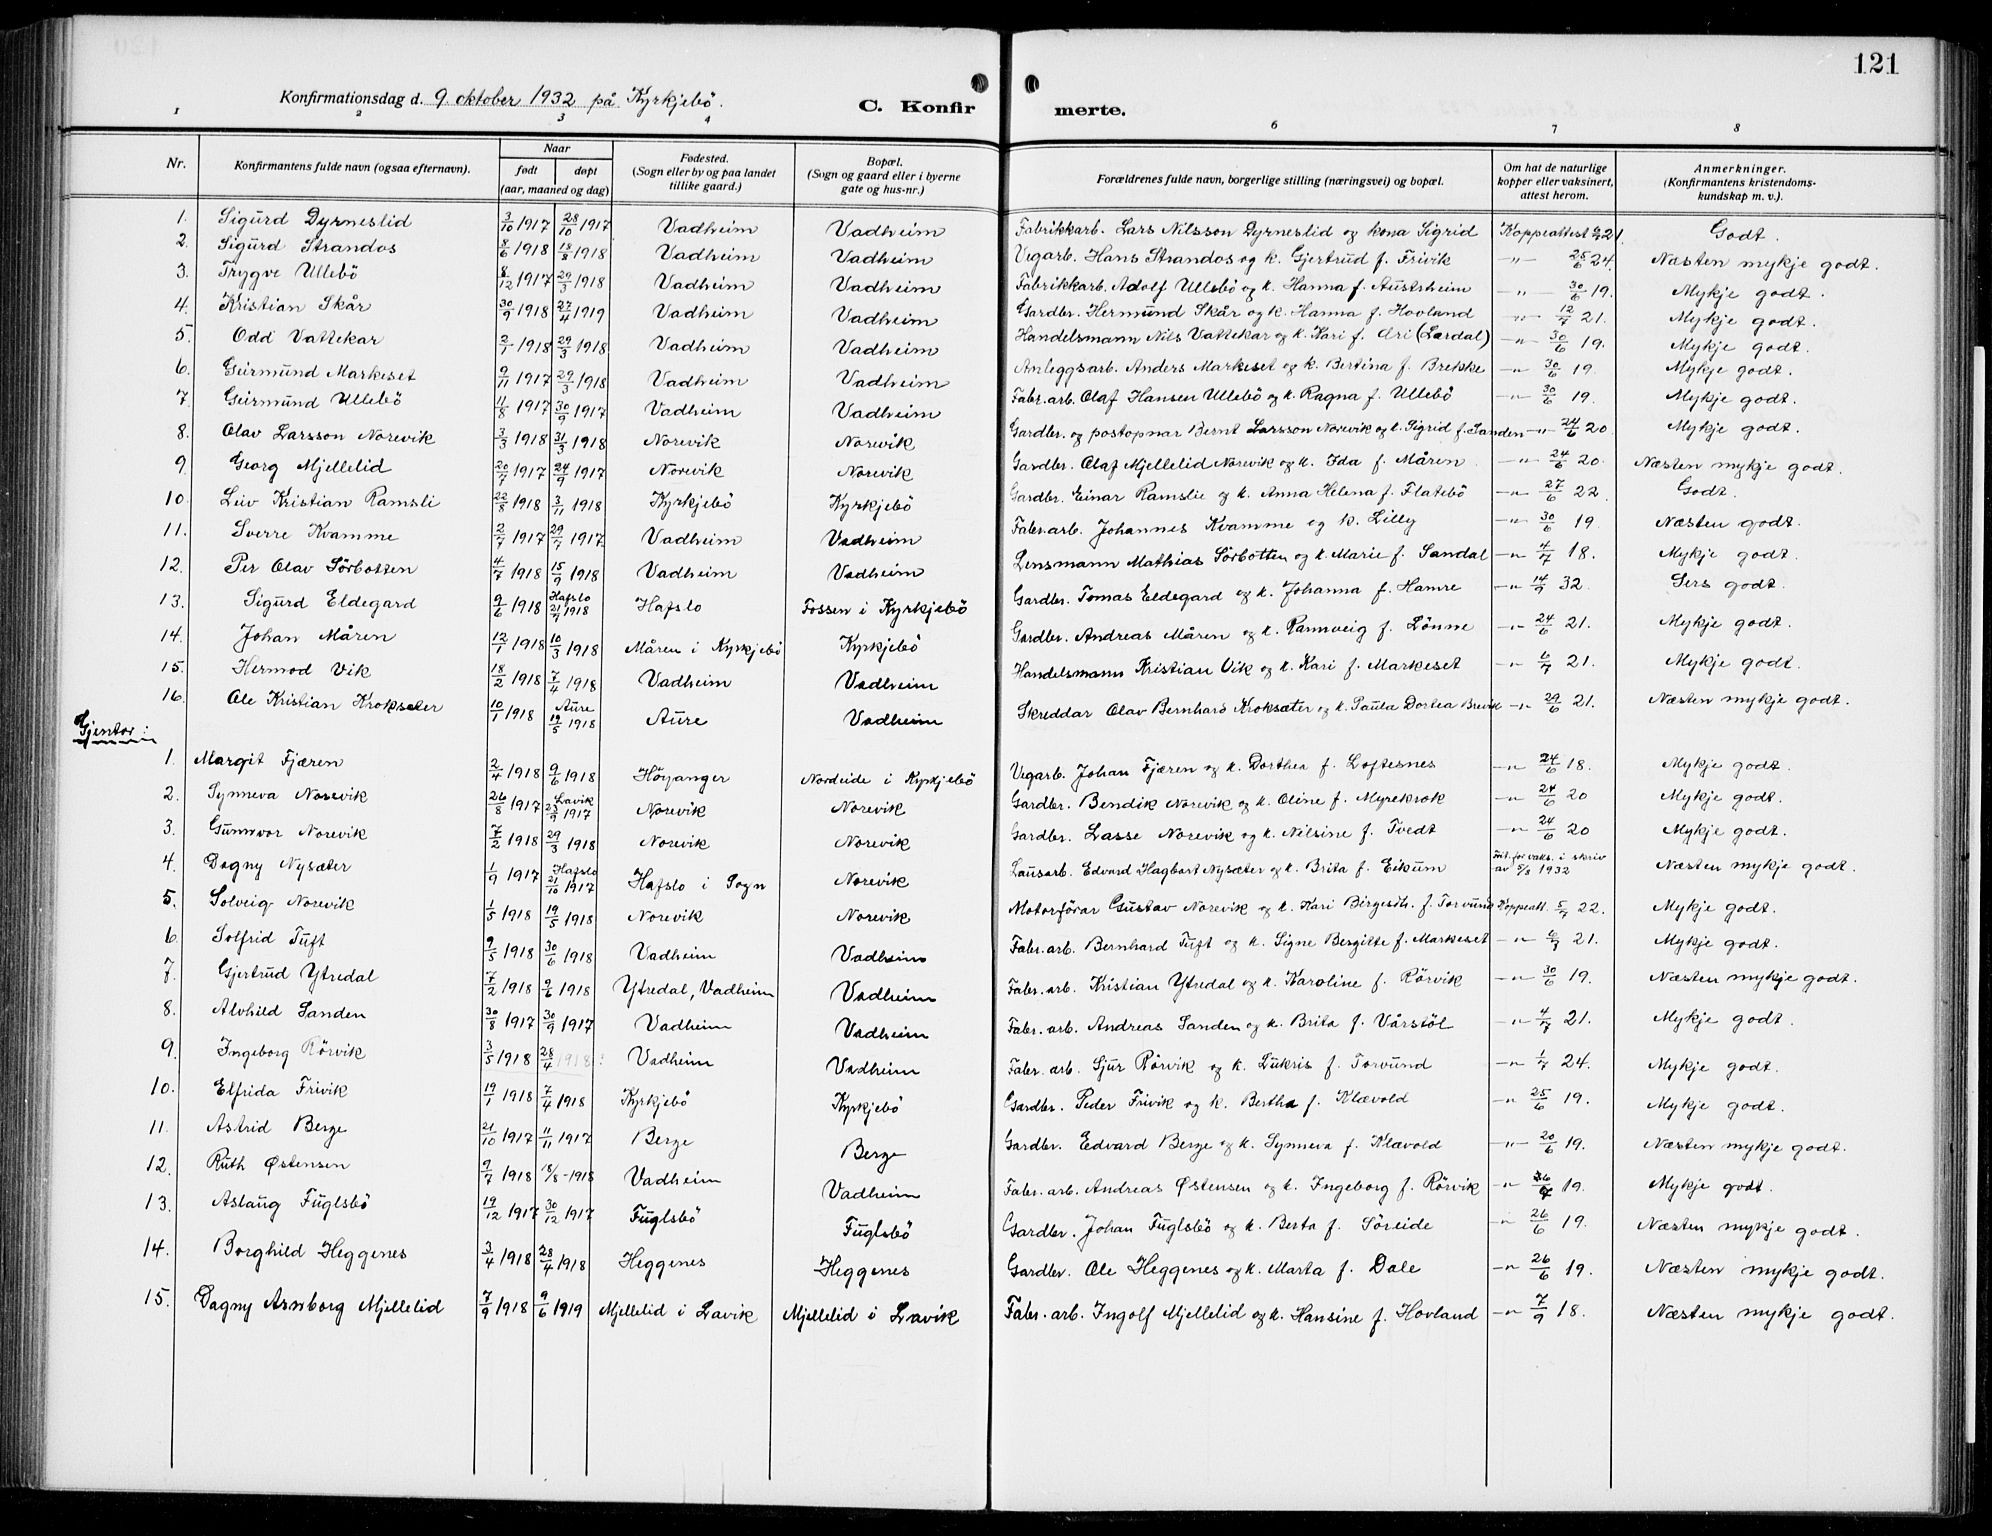 121
Konfirmationsdag d. 9. oktober 1932 på Kyrkjebö.
C. Konfir merte.
1 2 3 4 6 7 8
Nr. Konfirmantens fulde navn (ogsaa efternavn). Naar født døpt (aar, maaned og dag) Fødested. (Sogn eller by og paa landet tillike gaard.) Bopæl. (Sogn og gaard eller i byerne gate og hus-nr.) Forældrenes fulde navn, borgerlige stilling (næringsvei) og bopæl. Om hat de naturlige kopper eller vaksinert, attest herom. Anmerkninger. (Konfirmantens kristendoms- kundskap m. v.).
1. Sigurd Dyrneslid 3/10 1917 28/10 1917 Vadheim Vadheim Fabrikkarb. Lars Nilsson Dyrneslid og kona Sigrid Koppeattest 21. Godt.
2. Sigurd Strandos 8/6 1918 18/8 1918 Vadheim Vadheim Vegarb. Hans Strandos og k. Gjertrud f. Frivik -"- 25/6 24. Næsten mykje godt.
3. Trygve Ullebö 8/12 1917 29/3 1918 Vadheim Vadheim Fabrikkarb. Adolf Ullebö og k. Hanna f. Austrheim -"- 30/6 19. Mykje godt.
4. Kristian Skår 30/9 1918 27/4 1919 Vadheim Vadheim Gardbr. Hermund Skår og k. Hanna f. Hovland -"- 12/7 21. Mykje godt.
5. Odd Vattekar 2/1 1918 29/3 1918 Vadheim Vadheim Handelsmann Nils Vattekar og k. Kari f. Æri (Lærdal) -"- 30/6 19. Mykje godt.
6. Geirmund Markeset 9/11 1917 29/3 1918 Vadheim Vadheim Anleggsarb. Anders Markeset og k. Bertina f. Brekke -"- 30/6 19. Mykje godt.
7. Geirmund Ullebö 11/8 1917 30/9 1917 Vadheim Vadheim Fabr. arb. Olaf Hansen Ullebö og k. Ragna f. Ullebö -"- 30/6 19. Mykje godt.
8. Olav Larsson Norevik 3/3 1918 31/3 1918 Norevik Norevik Gardbr. og postopnar Bernt Larsson Norevik og k. Sigrid f. Sanden -"- 24/6 20. Mykje godt.
9. Georg Mjellelid 20/7 1917 24/9 1917 Norevik Norevik Gardbr. Olaf Mjellelid Norevik og k. Ida f. Måren -"- 24/6 20. Næsten mykje godt.
10. Leiv Kristian Ramsli 22/8 1918 3/11 1918 Kyrkjebö Kyrkjebö Gardbr. Einar Ramslie og k. Anna Helena f. Flatebö -"- 27/6 22. Godt.
11. Sverre Kvamme 2/7 1917 29/7 1917 Vadheim Vadheim Fabr. arb. Johannes Kvamme og k. Lilly -"- 30/6 19. Næsten godt.
12. Per Olav Sörbotten 4/7 1918 15/9 1918 Vadheim Vadheim Lensmann Mathias Sörbotten og k. Marie f. Sandal -"- 4/7 18. Mykje godt.
13. Sigurd Eldegard 9/6 1918 Hafslo 21/7 1918 Hafslo Fossen i Kyrkjebö Gardbr. Tomas Eldegard og k. Johanna f. Hamre -"- 14/9 32. Sers godt.
14. Johan Måren 12/1 1918 10/3 1918 Måren i Kyrkjebö Kyrkjebö Gardbr. Andreas Måren og k. Rannveig f. Lönne -"- 24/6 21. Mykje godt.
15. Hermod Vik 18/2 1918 7/4 1918 Vadheim Vadheim Handelsmann Kristian Vik og k. Kari f. Markeset -"- 6/7 21. Mykje godt.
16. Ole Kristian Kroksæter 10/1 1918 Aure 19/5 1918 Aure Vadheim Skreddar Olav Bernhard Kroksæter og k. Paula Dortea Brevik -"- 29/6 21. Næsten mykje godt.
Gjentor:
1. Margit Fjæren 2/4 1918 9/6 1918 Höyanger Nordeide i Kyrkjebö Vegarb. Johan Fjæren og k. Dorthea f. Loftesnes -"- 24/6 18. Mykje godt.
2. Synneva Norevik 26/8 1917 Lavik 23/9 1917 Norevik Norevik Gardbr. Bendik Norevik og k. Oline f. Myrekrok -"- 24/6 20 Mykje godt.
3. Gunnvor Norevik 7/2 1918 29/3 1918 Norevik Norevik Gardbr. Lasse Norevik og k. Nilsine f. Tvedt -"- 24/6 20 Mykje godt.
4. Dagny Nysæter 1/9 1917 Hafslo 21/10 1917 Hafslo i Sogn Norevik Lausarb. Edvard Hagbart Nysæter og k. Brita f. Eikum Frit. for vaks. i skriv av 5/8 1932 Næsten mykje godt.
5. Solveig Norevik 1/5 1918 19/5 1918 Norevik Norevik Motorförar Gustav Norevik og k. Kari Birgesdt. f. Torvund Koppeatt. 5/7 22. Mykje godt.
6. Solfrid Tuft 9/5 1918 30/6 1918 Vadheim Vadheim Fabr. arb. Bernhard Tuft og k. Signe Bergitte f. Markeset -"- 6/7 21. Mykje godt.
7. Gjertrud Ytredal 7/2 1918 9/6 1918 Ytredal, Vadheim Vadheim Fabr. arb. Kristian Ytredal og k. Karoline f. Rörvik -"- 30/6 19. Næsten mykje godt.
8. Alvhild Sanden 30/8 1917 30/9 1917 Vadheim Vadheim Fabr. arb. Andreas Sanden og k. Brita f. Vårstöl -"- 4/7 21. Mykje godt.
9. Ingeborg Rörvik 3/5 1918 28/4 1918? Vadheim Vadheim Fabr. arb. Sjur Rörvik og k. Lukris f. Torvund -"- 1/7 24. Mykje godt.
10. Elfrida Frivik 19/1 1918 7/4 1918 Kyrkjebö Kyrkjebö Gardbr. Peder Frivik og k. Bertha f. Klævold -"- 25/6 19. Mykje godt.
11. Astrid Berge 21/10 1917 11/11 1917 Berge Berge Gardbr. Edvard Berge og k. Synneva f. Klævold -"- 20/6 19. Næsten mykje godt.
12. Ruth Østensen 9/7 1918 18/8-1918 Vadheim Vadheim Fabr. arb. Andreas Østensen og k. Ingeborg f. Rörvik -"- 19. Mykje godt.
13. Aslaug Fuglsbö 19/12 1917 30/12 1917 Fuglsbö Fuglsbö Gardbr. Johan Fuglsbö og k. Berta f. Söreide -"- 26/6 19. Næsten mykje godt.
14. Borghild Heggenes 3/4 1918 28/4 1918 Heggenes Heggenes Gardbr. Ole Heggenes og k. Marta f. Dale -"- 26/6 19. Næsten mykje godt.
15. Dagny Arnborg Mjellelid 7/9 1918 9/6 1919 Mjellelid i Lavik Mjellelid i Lavik Fabr. arb. Ingolf Mjellelid og k. Hansine f. Hovland -"- 7/9 18. Næsten mykje godt.